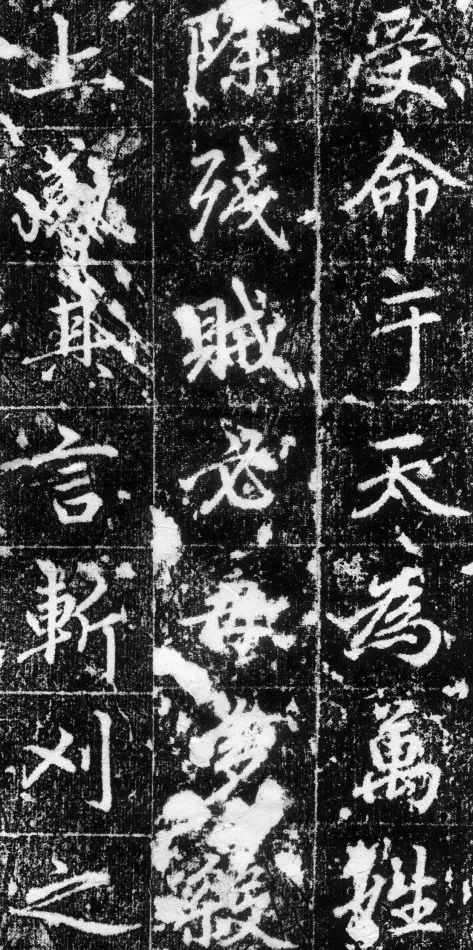 受命于天為萬姓
除殘賊必毋多殺
上感其言斬刈之